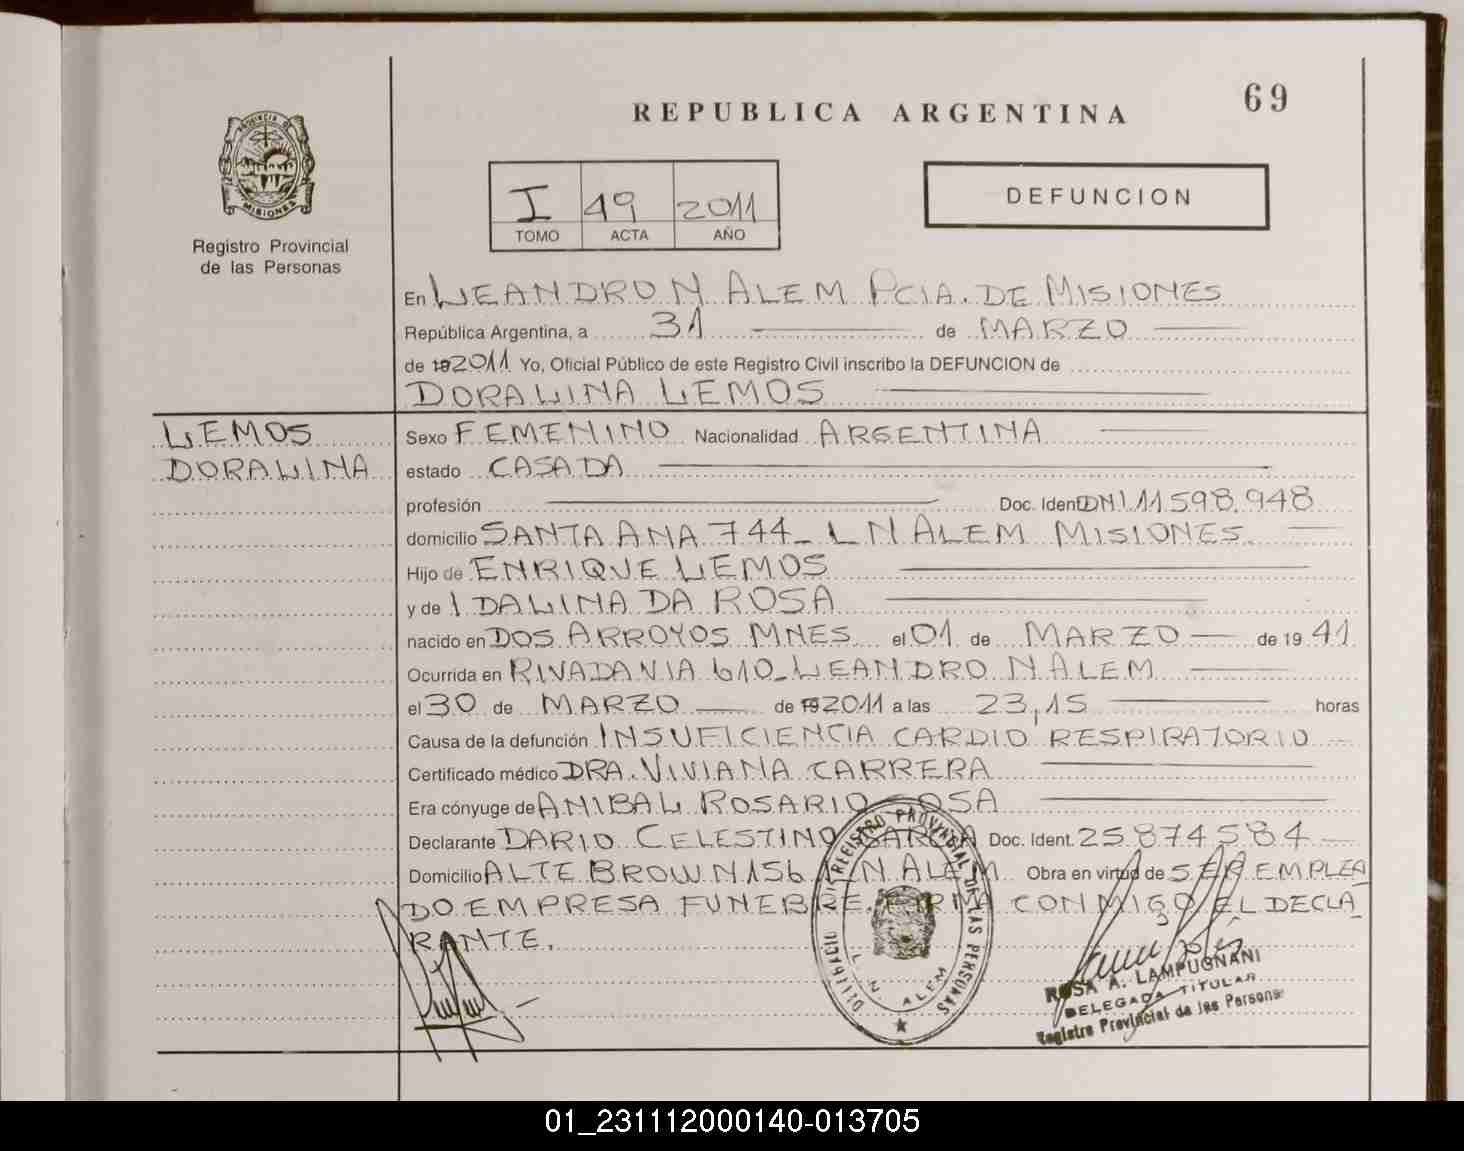 69
REPUBLICA ARGENTINA
PROVINCIA DE
MISIONES
Registro Provincial
de las Personas
I 49 2011
TOMO ACTA AÑO
DEFUNCION
En LEANDRO N ALEM PCIA. DE MISIONES
República Argentina, a 31 de MARZO
de 192011 Yo, Oficial Público de este Registro Civil inscribo la DEFUNCION de
DORALINA LEMOS
LEMOS
DORALINA
Sexo FEMENINO Nacionalidad ARGENTINA
estado CASADA
profesión Doc. Ident DNI 11598.948
domicilio SANTA ANA 744_ L N ALEM MISIONES
Hijo de ENRIQUE LEMOS
y de IDALINA DA ROSA
nacido en DOS ARROYOS MNES el 01 de MARZO de 19 41
Ocurrida en RIVADAVIA 610_LEANDRO N ALEM
el 30 de MARZO de 192011 a las 23,15 horas
Causa de la defunción INSUFICIENCIA CARDIO RESPIRATORIO
Certificado médico DRA. VIVIANA CARRERA
Era cónyuge de ANIBAL ROSARIO SOSA
Declarante DARIO CELESTINO GARCIA Doc. Ident. 25874584
Domicilio ALTE BROWN 156 L N ALEM Obra en virtud de SER EMPLEA
DO EMPRESA FUNEBRE. FIRMA CONMIGO EL DECLA
RANTE.
REGISTRO PROVINCIAL DE LAS PERSONAS
L. N. ALEM
ROSA A. LAMPUGNANI
DELEGADA TITULAR
Registro Provincial de las Personas
01_231112000140-013705